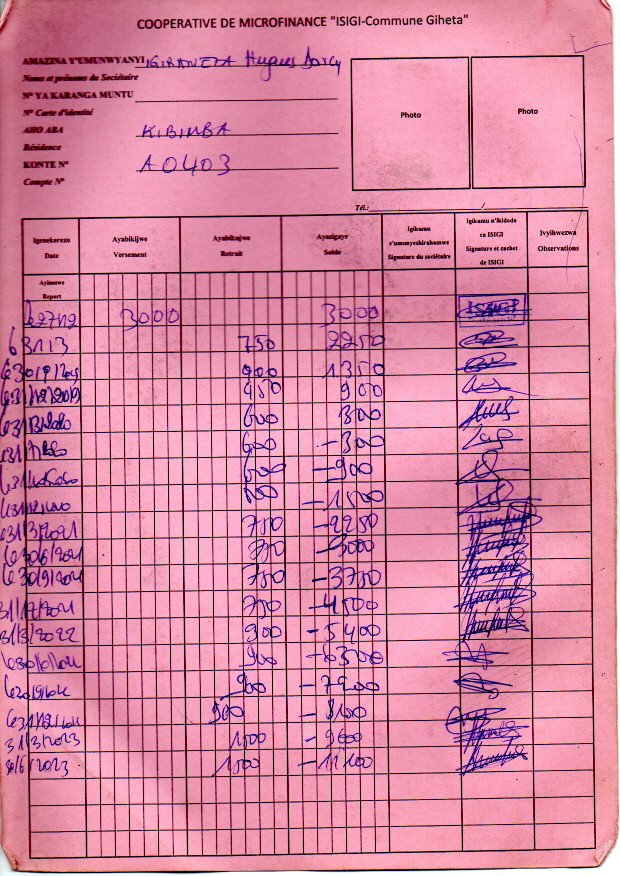 COOPERATIVE DE MICROFINANCE "ISIGI-Commune Giheta"
AMAZINA Y'UMUNWYANYI IGIRANEZA Hugues Darcy
Noms et prénoms du Sociétaire
N° YA KARANGA MUNTU
N° Carte d'identité
AHO ABA KIBIMBA
Résidence
KONTE N° A0403
Compte N°
Photo
Photo
Tél.: /
Igenekerezo Date
Ayabikijwe Versement
Ayabikujwe Retrait
Ayasigaye Solde
Igikumu c'umunyeshirahamwe Signature du sociétaire
Igikumu n'ikidodo ca ISIGI Signature et cachet de ISIGI
Ivyihwezwa Observations
Ayimuwe Report
3000 3000
750 2250
900 1350
Le 31/12/2019 450 900
600 300
600 -300
600 -900
600 -1500
Le 31/3/2021 750 -2250
Le 30/6/2021 750 -3000
Le 30/9/2021 750 -3750
31/12/2021 750 -4500
31/3/2022 900 -5400
900 -6300
900 -7200
900 -8100
31/3/2023 1500 -9600
30/6/2023 1500 -11100